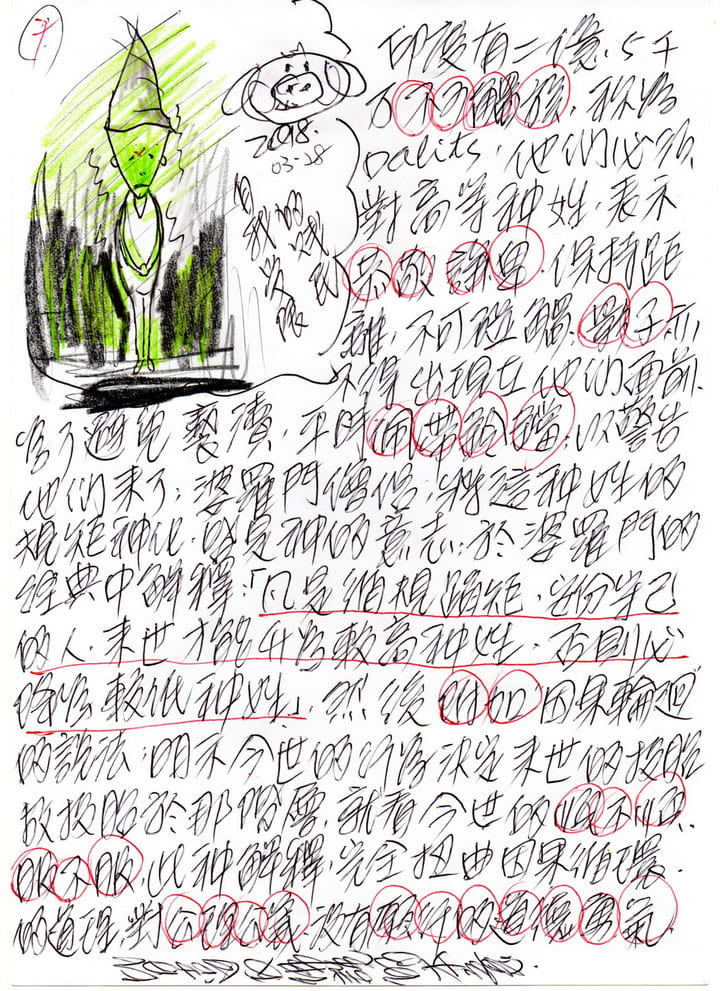 印度有二億、5千
万不可觸孩，称為
Dalits，他們必須
對高等种姓，表示
恭敬謙卑，保持距
離，不可碰觸，影子亦
不得出現在他們面前，
為了避免褻瀆，平時佩带鈴鐺，以警告
他們来了；婆羅門僧侶，將這种姓的
規矩神化，說是神的意志；於婆羅門的
經典中解釋：「凡是循規蹈矩，安份守己
的人，来世才能升為較高种姓，否則必
降為較低种姓」，然後附加“因果輪迴”
的說法，明示今世的行為決定来世的投胎
故投胎於那階層，就看今世的順不順，
服不服，此种解釋，完全扭曲因果循環
的道理，對公理公義，没有的道德勇氣
2018.
03-28
自我的
設限